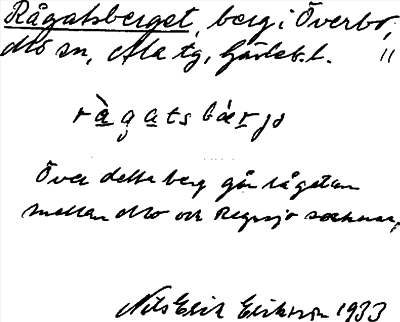 Rågatsberget, berg i Överbo,
Mo sn, Ala tg, Gävleb. l. "
ràgatsbærjə
Över detta berg går rågatan
mellan Mo och Regnsjö socknar,
Nils Erik Eriksson 1933